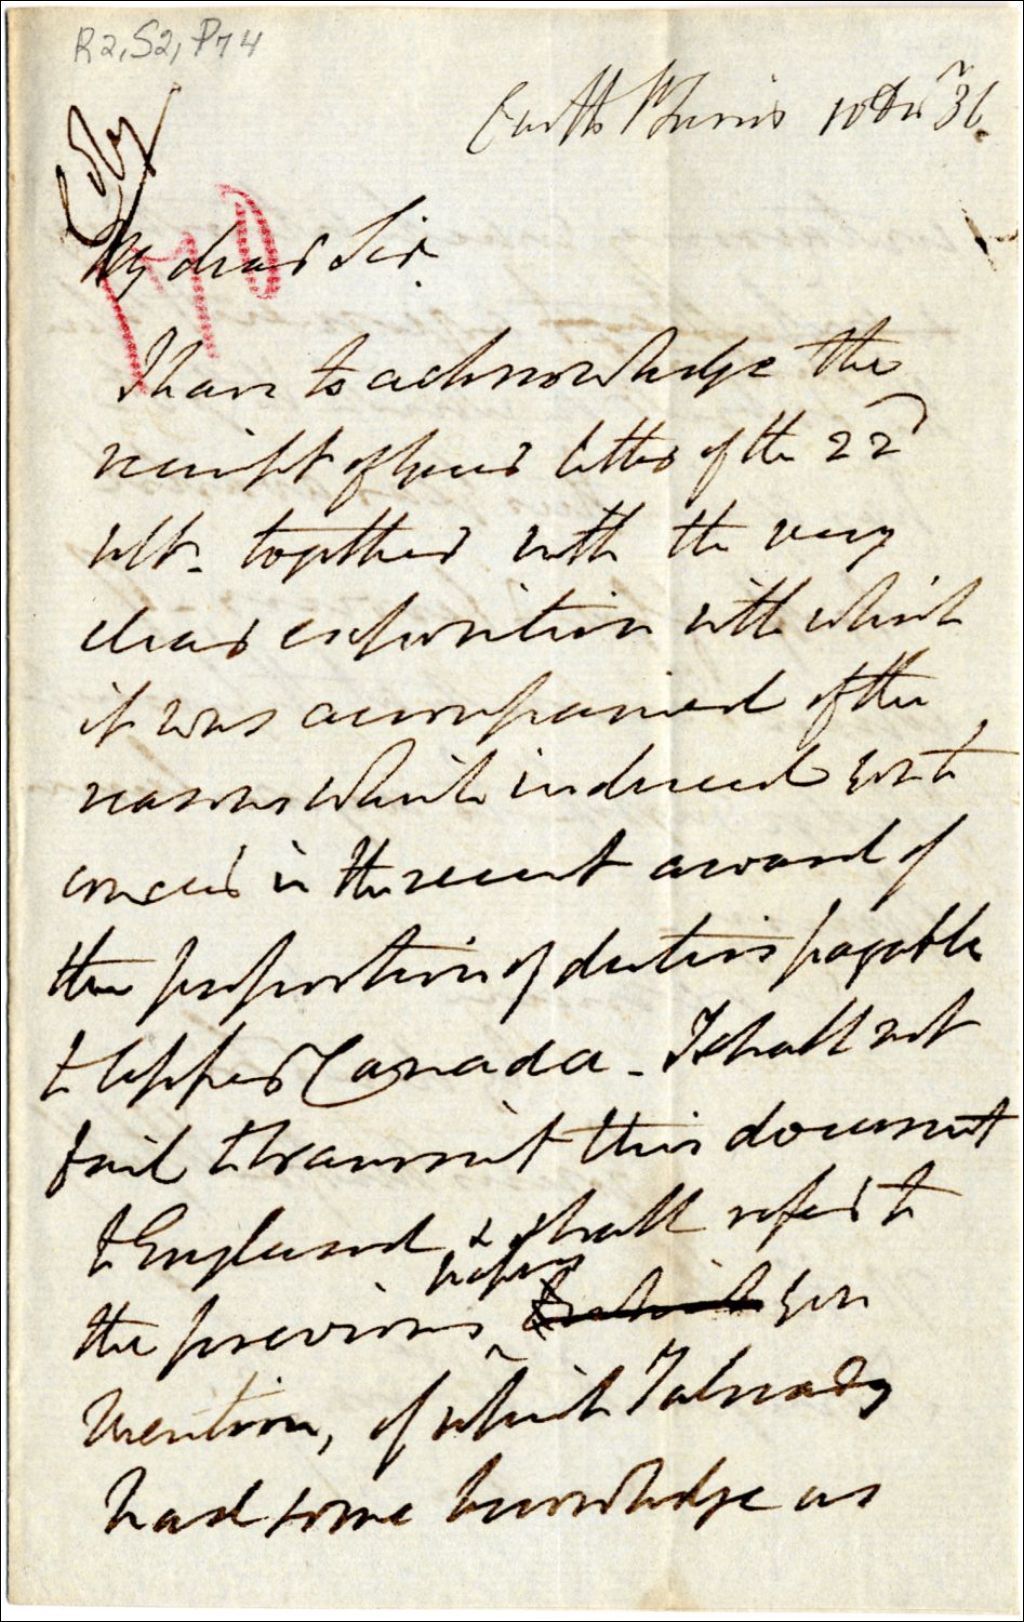 R2, S2, P74
Castle St Lewis 10 Decr 36.
Copy
170
My dear Sir
I have to acknowledge the
receipt of your letter of the 22d
ult. together with the very
clear exposition with which
it was accompanied of the
reasons which induced you to
concur in the recent award of
the proportion of duties payable
to Upper Canada - I shall not
fail to transmit this document
to England & shall refer to
papers
the previous ^ you
mention, of which I already
had some knowledge as